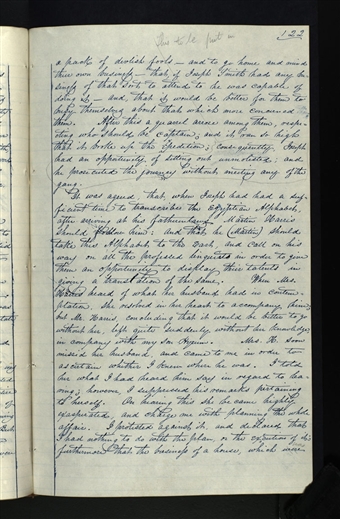 This to be put in
122
a pack of devlish fools— and to go home and mind
their own business— that, if Joseph Smith had any bu-
siness of that sort to attend to he was capable of
doing it— and, that it would be better for them to
busy themselves about that which more concerned
them. After this a quarrel arose among them, respe-
cting who should be captain; and it ran so high
that it broke up the expedition; consequently, Joseph
had an opportunity of setting out unmolested; and
he prosecuted the journey without meeting any of the
gang.
It was agreed that when Joseph had had a suf-
ficient time to transcribe the Egyptian Alphabet,
after arriving at his Martin Harris
should follow him; and that he (Martin) should
take this Alphabet to the East, and call on his
way on all the professed linguists in order to give
them an opportunity to display their talents in
giving a translation of the same. When Mrs.
Harris heard of what her husband had in contem-
plation, she resolved in her heart to accompany him;
but Mr. Harris, concluding that it would be better to go
without her, left quite suddenly without her knowledge
in company with my son Hyrum. Mrs. H. soon
missed her husband, and came to me in order to
ascertain whether I knew where he was. I told
her what I had heard him say in regard to lea-
ving; however, I suppressed his remarks pertaining
to herself. On hearing this she became highly
exasperated, and charged me with planning the whole
affair. I protested against it, and declared that
I had nothing to do with the plan, or the execution of it;
furthermore, that the business of a house, which were